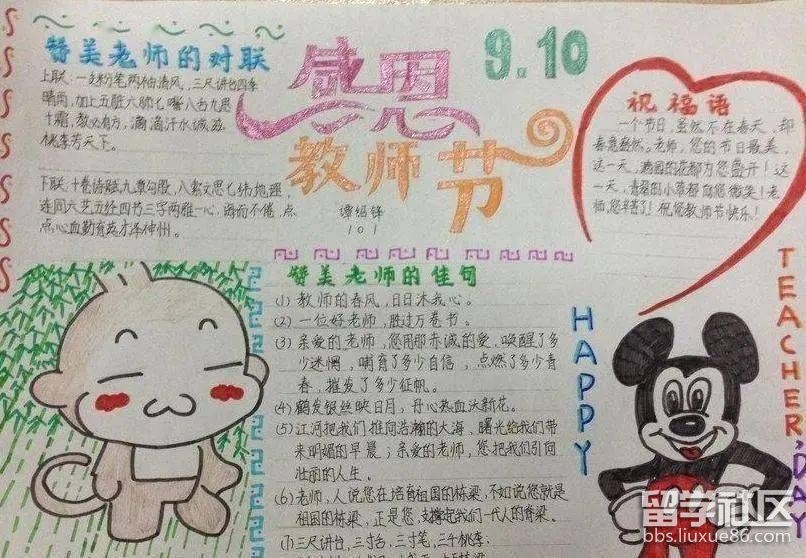 赞美老师的对联
上联:一支粉笔两袖清风,三尺讲台四季
晴雨,加上五脏六肺七嘴八舌九思
十霜,教必有方,滴滴汗水诚滋
桃李芳天下。
下联:十卷诗赋九章勾股,八索文思七纬地理,
连同六艺五经四书三字两雅一心,诲而不倦,点
点心血勤育英才泽神州。
感恩
教师节
9.10
101
祝福语
一个节日,虽然不在春天,却
春意盎然。老师,您的节日最美,
这一天,满园的花都为您盛开!这
一天,青翠的小草都向您微笑!老
师,您辛苦了!祝您教师节快乐!
赞美老师的佳句
(1) 教师的春风,日日沐我心。
(2) 一位好老师,胜过万卷书。
(3) 亲爱的老师,您用那赤诚的爱,唤醒了多
少迷惘,哺育了多少自信,点燃了多少青
春,摧发了多少征帆。
(4) 鹤发银丝映日月,丹心热血沃新花。
(5) 江河把我们推向浩瀚的大海,曙光给我们带
来明媚的早晨;亲爱的老师,您把我们引向
壮丽的人生。
(6) 老师,人说您在培育祖国的栋梁,不如说您就是
祖国的栋梁,正是您,支撑起我们一代人的脊梁。
(7) 三尺讲台,三寸舌,三寸笔,三千桃李;
HAPPY
TEACHER'DAY
留学社区
bbs.liuxue86.com